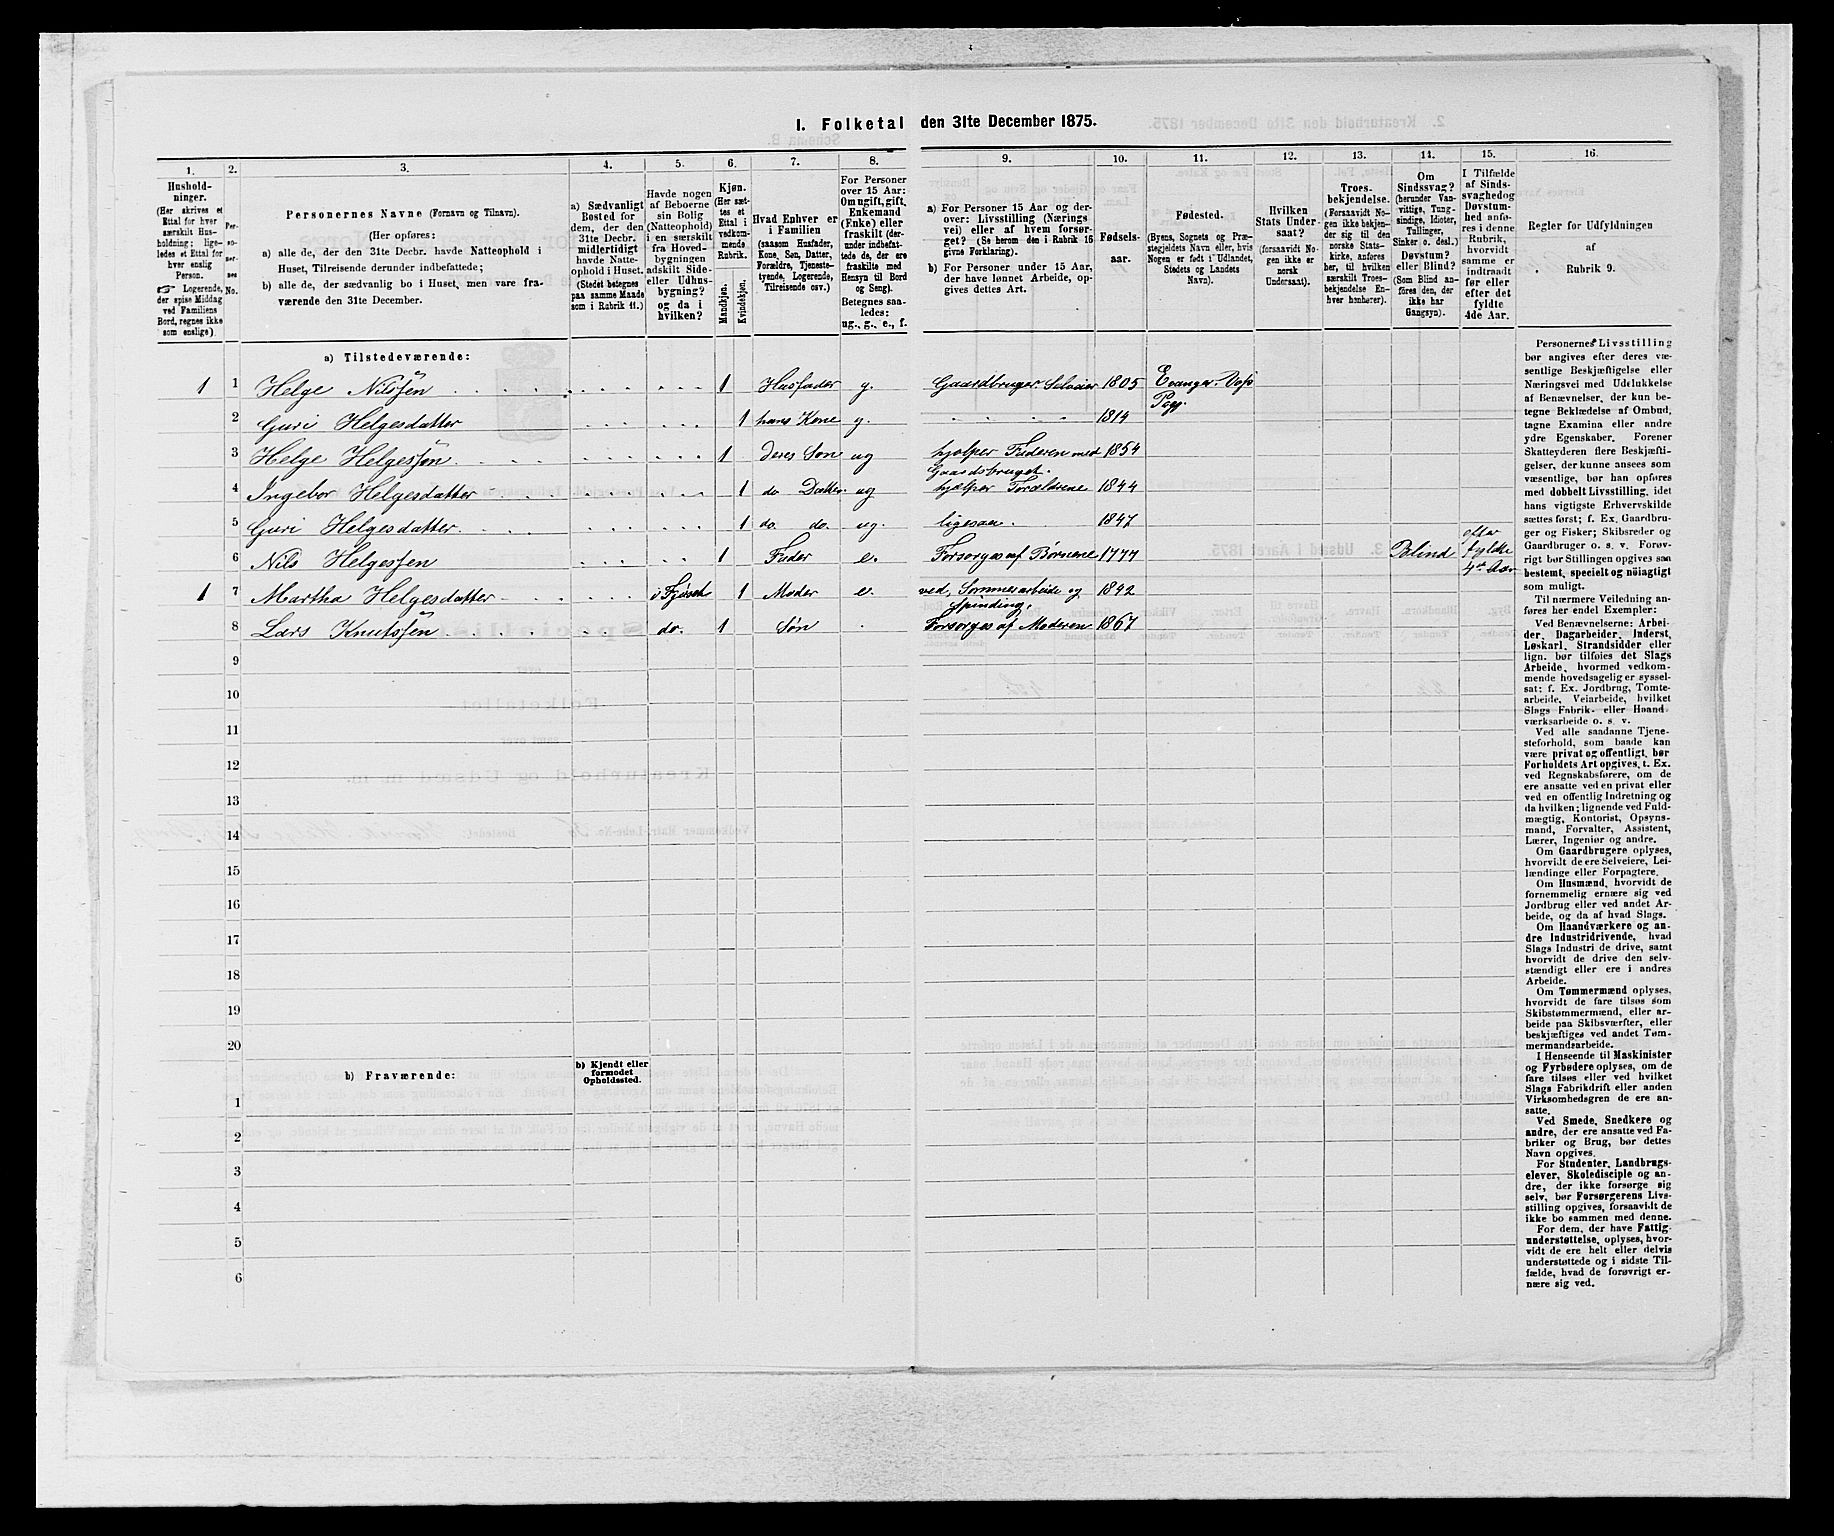 I. Folketal den 31te December 1875.
1.
Hushold-
ninger.
(Her skrives et
Ettal for hver
særskilt Hus-
holdning; lige-
ledes et Ettal for
hver enslig
Person.
☞ Logerende,
der spise Middag
ved Familiens
Bord, regnes ikke
som enslige).
2.
Per-
so-
ner-
nes
No.
3.
Personernes Navne (Fornavn og Tilnavn).
(Her opføres:
a) alle de, der den 31te Decbr. havde Natteophold i
Huset, Tilreisende derunder indbefattede;
b) alle de, der sædvanlig bo i Huset, men vare fra-
værende den 31te December.
4.
a) Sædvanligt
Bosted for
dem, der den
31te Decbr.
midlertidigt
havde Natte-
ophold i Huset.
(Stedet betegnes
paa samme Maade
som i Rubrik 11.)
5.
Havde nogen
af Beboerne
sin Bolig
(Natteophold)
i en særskilt
fra Hoved-
bygningen
adskilt Side-
eller Udhus-
bygning?
og da i
hvilken?
6.
Kjøn.
(Her sæt-
tes et
Ettal i
vedkom-
mende
Rubrik.
Mandkjøn.
Kvindekjøn.
7.
Hvad Enhver er
i Familien
(saasom Husfader,
Kone, Søn, Datter,
Forældre, Tjeneste-
tyende, Logerende,
Tilreisende osv.)
8.
For Personer
over 15 Aar:
Om ugift, gift,
Enkemand
(Enke) eller
fraskilt (der-
under indbefat-
tede de, der ere
fraskilte med
Hensyn til Bord
og Seng).
Betegnes saa-
ledes:
ug., g., e., f.
9.
a) For Personer 15 Aar og der-
over: Livsstilling (Nærings
vei) eller af hvem forsør-
get? (Se herom den i Rubrik 16
givne Forklaring).
b) For Personer under 15 Aar,
der have lønnet Arbeide, op-
gives dettes Art.
10.
Fødsels-
aar.
11.
Fødested.
(Byens, Sognets og Præ-
stegjeldets Navn eller, hvis
Nogen er født i Udlandet,
Stedets og Landets
Navn).
12.
Hvilken
Stats Under-
saat?
(forsaavidt No-
gen ikke er
norsk
Undersaat).
13.
Troes-
bekjendelse.
(Forsaavidt No-
gen ikke bekjen-
der sig til den
norske Stats-
kirke, anføres
her, til hvilken
særskilt Troes-
bekjendelse En-
hver henhører).
14.
Om
Sindssvag?
(herunder Van-
vittige, Tung-
sindige, Idioter,
Tullinger,
Sinker o. desl.)
Døvstum?
eller Blind?
(Som Blind an-
føres den, der
ikke har
Gangsyn).
15.
I Tilfælde
af Sinds-
svaghedog
Døvstum-
hed anfø-
res i denne
Rubrik,
hvorvidt
samme er
indtraadt
før eller
efter det
fyldte
4de Aar.
16.
Regler for Udfyldningen
af
Rubrik 9.
a) Tilstedeværende:
1 1 Helge Nilssen 1 Husfader g. Gaardbruger Selveier 1805 Evanger. Voss
Pgj.
2 Guri Helgesdatter 1 hans Kone g. 1814
3 Helge Helgessøn 1 deres Søn ug hjælper Faderen med 1854
Gaardsbruget.
4 Ingebor Helgesdatter 1 do Datter ug hjælper Forældrene 1844
5 Guri Helgesdatter 1 do. do. ug. ligesaa. 1847
6 Nils Helgessen 1 Fader e. Forsørges af Børnene 1777 Blind efter
fyldte
4de Aar
1 7 Martha Helgesdatter i Fjøset 1 Moder e. ved, Sommerarbeide og 1842
Spinding.
8 Lars Knutssen do. 1 Søn Forsørges af Moderen 1867
9
10
11
12
13
14
15
16
17
18
19
20
b) Fraværende:
b) Kjendt eller
formodet
Opholdssted.
1
2
3
4
5
6
Personernes Livsstilling
bør angives efter deres væ-
sentlige Beskjæftigelse eller
Næringsvei med Udelukkelse
af Benævnelser, der kun be-
tegne Beklædelse af Ombud,
tagne Examina eller andre
ydre Egenskaber. Forener
Skatteyderen flere Beskjæfti-
gelser, der kunne ansees som
væsentlige, bør han opføres
med dobbelt Livsstilling, idet
hans vigtigste Erhvervskilde
sættes først; f. Ex. Gaardbru-
ger og Fisker; Skibsreder og
Gaardbruger o. s. v. Forøv-
rigt bør Stillingen opgives saa
bestemt, specielt og nöiagtigt
som muligt.
Til nærmere Veiledning an-
føres her endel Exempler:
Ved Benævnelserne: Arbei-
der, Dagarbeider, Inderst,
Løskarl, Strandsidder eller
lign. bør tilføies det Slags
Arbeide, hvormed vedkom-
mende hovedsagelig er syssel-
sat; f. Ex. Jordbrug, Tomte-
arbeide, Veiarbeide, hvilket
Slags Fabrik- eller Haand-
værksarbeide o. s. v.
Ved alle saadanne Tjene-
steforhold, som baade kan
være privat og offentligt, bør
Forholdets Art opgives, t. Ex.
ved Regnskabsførere, om de
ere ansatte ved en privat eller
ved en offentlig Indretning og
da hvilken; lignende ved Fuld-
mægtig, Kontorist, Opsyns-
mand, Forvalter, Assistent,
Lærer, Ingeniør og andre.
Om Gaardbrugere oplyses,
hvorvidt de ere Selveiere, Lei-
lændinge eller Forpagtere.
Om Husmænd, hvorvidt de
fornemmelig ernære sig ved
Jordbrug eller ved andet Ar-
beide, og da af hvad Slags.
Om Haandværkere og an-
dre Industridrivende, hvad
Slags Industri de drive, samt
hvorvidt de drive den selv-
stændigt eller ere i andres
Arbeide.
Om Tømmermænd oplyses,
hvorvidt de fare tilsøs som
Skibstømmermænd, eller ar-
beide paa Skibsværfter, eller
beskjæftiges ved andet Tøm-
mermandsarbeide.
I Henseende til Maskinister
og Fyrbødere oplyses, om de
fare tilsøs eller ved hvilket
Slags Fabrikdrift eller anden
Virksomhedsgren de ere an-
satte.
Ved Smede, Snedkere og
andre, der ere ansatte ved Fa-
briker og Brug, bør dettes
Navn opgives.
For Studenter, Landbrugs-
elever, Skoledisciple og an-
dre, der ikke forsørge sig
selv, bør Forsørgerens Livs-
stilling opgives, forsaavidt de
ikke bo sammen med denne.
For dem, der have Fattig-
understøttelse, oplyses, hvor-
vidt de ere helt eller delvis
understøttede og i sidste Til-
fælde, hvad de forøvrigt er-
nære sig ved.